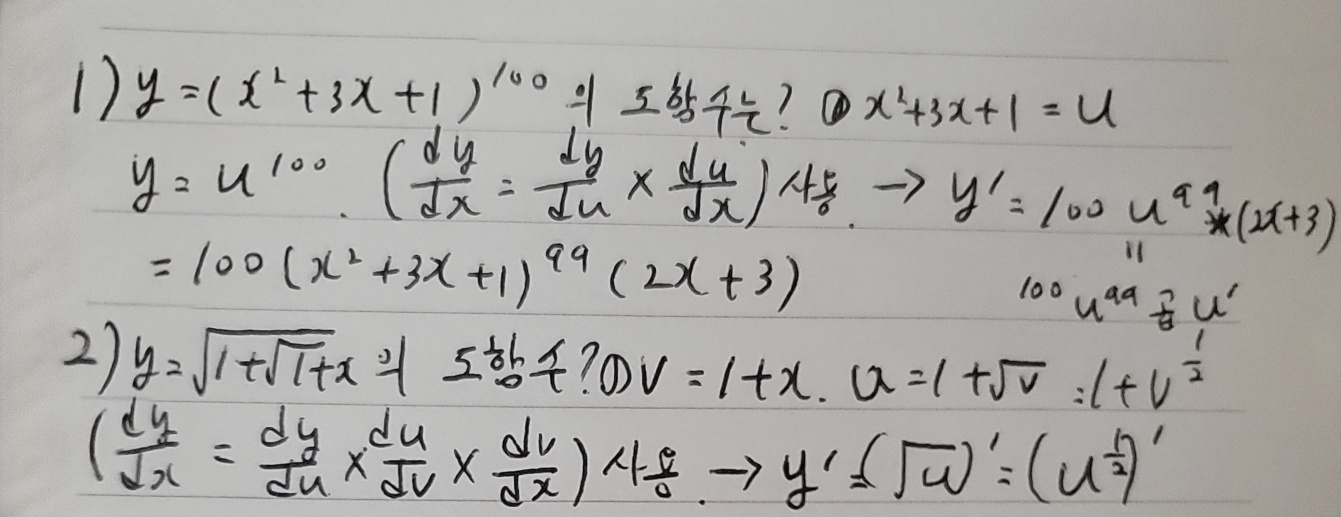 1) y = (x²+3x+1)¹⁰⁰ 의 도함수는? ① x²+3x+1 = u
y = u¹⁰⁰. (dy/dx = dy/du × du/dx) 사용. → y' = 100 u⁹⁹ * (2x+3)
= 100 (x²+3x+1)⁹⁹ (2x+3) || 100 u⁹⁹ 곱 u'
2) y = √(1+√(1+x)) 의 도함수? ① v = 1+x. u = 1+√v = 1+v^(1/2)
(dy/dx = dy/du × du/dv × dv/dx) 사용. → y' = (√u)' = (u^(1/2))'